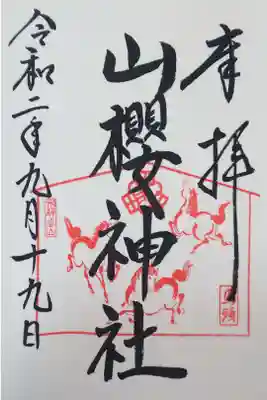 奉拝
山櫻神社
令和二年九月十九日